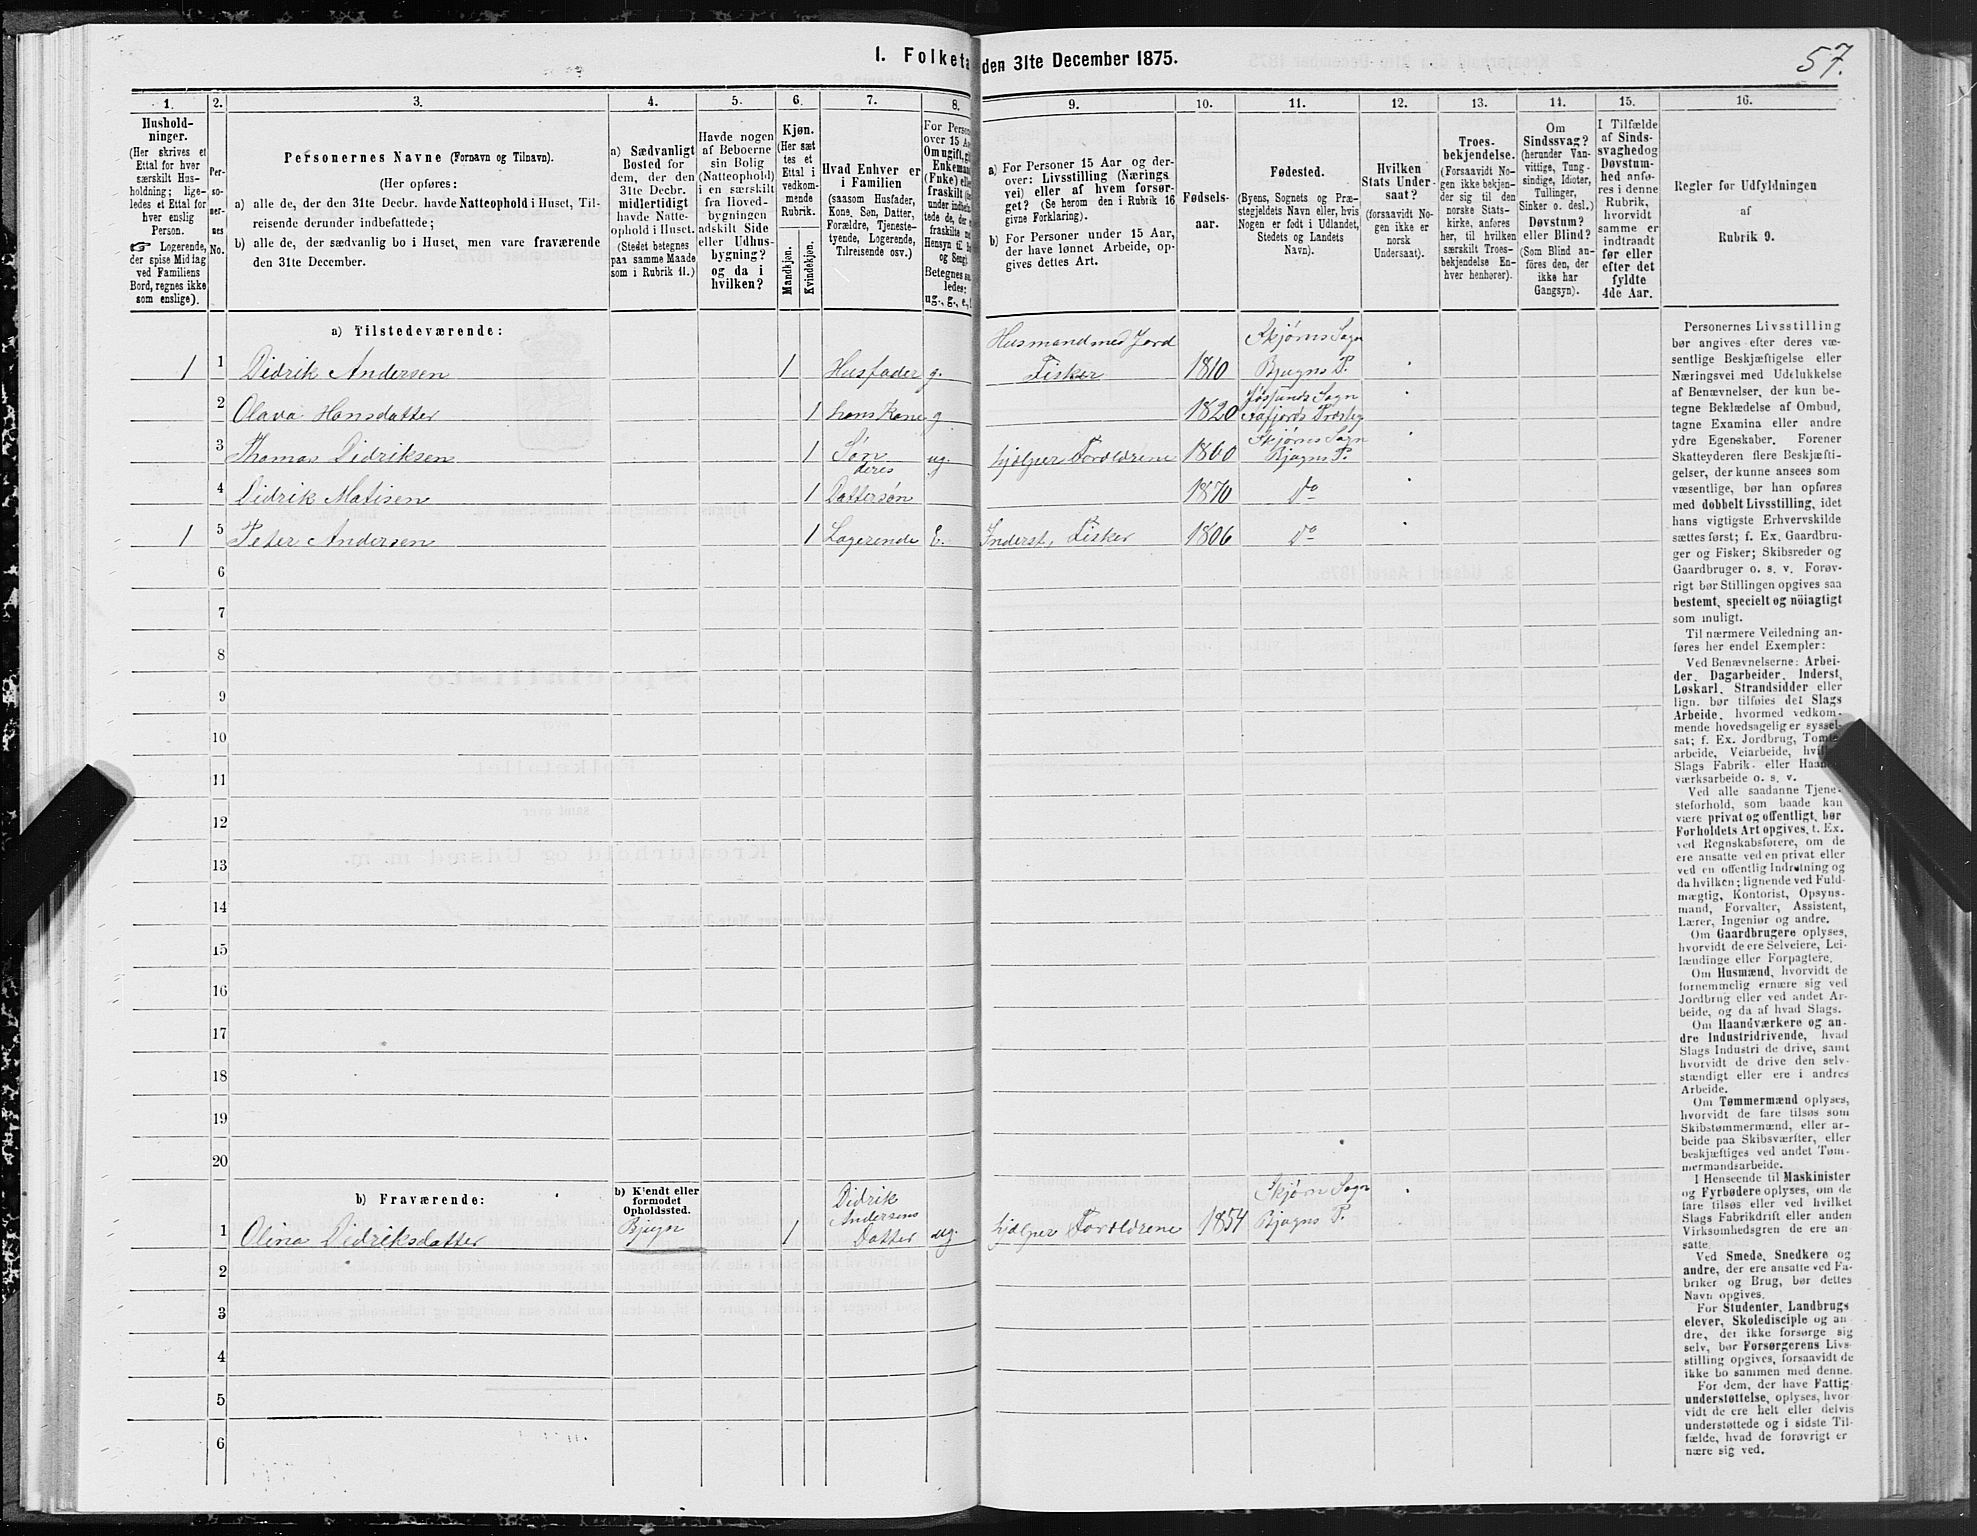 I. Folketa
den 31te December 1875.
57.
1.
2.
3.
4.
5.
6.
7.
8.
9.
10.
11.
12.
13.
14.
15.
16.
Hushold-
ninger.
(Her skrives et
Ettal for hver
særskilt Hus-
holdning; lige-
ledes et Ettal for
hver enslig
Person.
Logerende,
der spise Middag
ved Familiens
Bord, regnes ikke
som enslige).
Per-
so-
ner-
nes
No.
Personernes Navne (Fornavn og Tilnavn).
(Her opføres:
a) alle de, der den 31te Decbr. havde Natteophold i Huset, Til-
reisende derunder indbefattede;
b) alle de, der sædvanlig bo i Huset, men vare fraværende
den 31te December.
a) Sædvanligt
Bosted for
dem, der den
31te Decbr.
midlertidigt
havde Natte-
ophold i Huset.
(Stedet betegnes
paa samme Maade
som i Rubrik 11.)
Havde nogen
af Beboerne
sin Bolig
(Natteophold)
i en særskilt
fra Hoved-
bygningen
adskilt Side
eller Udhus-
bygning?
og da i
hvilken?
Kjøn.
(Her sæt
tes et
Ettal i
vedkom-
mende
Rubrik.
Mandkjøn.
Kvindekjøn.
Hvad Enhver er
i Familien
(saasom Husfader,
Kone, Søn, Datter,
Forældre, Tjeneste-
tyende, Logerende,
Tilreisende osv.)
For Person
over 15 Aa
Om ugift, g
Enkeman
(Fnke) elle
fraskilt
under indbefat
tede de, der
fraskilte
Hensyn til
og Seng).
Betegnes sa
ledes:
ug., g., e.,
a) For Personer 15 Aar og der-
over: Livsstilling (Nærings
vei) eller af hvem forsør-
get? (Se herom den i Rubrik 16
givne Forklaring).
b) For Personer under 15 Aar,
der have lønnet Arbeide, op-
gives dettes Art.
Fødsels-
aar.
Fødested.
(Byens, Sognets og Præ-
stegjeldets Navn eller, hvis
Nogen er født i Udlandet,
Stedets og Landets
Navn).
Hvilken
Stats Under-
saat?
(forsaavidt No-
gen ikke er
norsk
Undersaat).
Troes-
bekjendelse.
(Forsaavidt No-
gen ikke bekjen-
der sig til den
norske Stats-
kirke, anføres
her, til hvilken
særskilt Troes-
bekjendelse En-
hver henhører).
Om
Sindssvag?
(herunder Van-
vittige, Tung-
sindige, Idioter,
Tullinger,
Sinker o. desl.)
Døvstum?
eller Blind?
(Som Blind an-
føres den, der
ikke har
Gangsyn).
I Tilfælde
af Sinds-
svaghed og
Døvstum-
hed anfø-
res i denne
Rubrik,
hvorvidt
samme er
indtraadt
før eller
efter det
fyldte
4de Aar.
Regler før Udfyldningen
af
Rubrik 9.
a) Tilstedeværende:
Husmand med Jord Skjørns Sogn
1 1 Didrik Andersen 1 Husfader g. Fisker 1810 Bjugns P.
Jøssunds Sogn
2 Olava Hansdatter 1 hans Kone g 1820 Aafjords
Skjørns Sogn
3 Thomas Didriksen 1 Søn ug. hjælper Forældrene 1860 Bjugns P.
deres
4 Didrik Matisen 1 Dattersøn 1870 do
1 5 Peter Andersen 1 Logerende E. Inderst, Fisker 1806 do
6
7
8
9
10
11
12
13
14
15
16
17
18
19
20
b) Fraværende:
b) Kjendt eller
formodet
Opholdssted.
Didrik Skjørn Sogn
Andersens
1 Olina Didriksdatter Bjugn 1 Datter ug. hjælper Forældrene 1854 Bjugns P.
2
3
4
5
6
Personernes Livsstilling
bør angives efter deres væ-
sentlige Beskjæftigelse eller
Næringsvei med Udelukkelse
af Benævnelser, der kun be-
tegne Beklædelse af Ombud,
tagne Examina eller andre
ydre Egenskaber. Forener
Skatteyderen flere Beskjæfti-
gelser, der kunne ansees som
væsentlige, bør han opføres
med dobbelt Livsstilling, idet
hans vigtigste Erhvervskilde
sættes først; f. Ex. Gaardbru-
ger og Fisker; Skibsreder og
Gaardbruger o. s. v. Forøv-
rigt bør Stillingen opgives saa
bestemt, specielt og nöiagtigt
som muligt.
Til nærmere Veiledning an-
føres her endel Exempler:
Ved Benævnelserne: Arbei-
der, Dagarbeider, Inderst,
Løskarl, Strandsidder eller
lign. bør tilføies det Slags
Arbeide, hvormed vedkom-
mende hovedsagelig er syssel-
sat; f. Ex. Jordbrug, Tomte-
arbeide, Veiarbeide, hvilket
Slags Fabrik- eller Haand-
værksarbeide o. s. v.
Ved alle saadanne Tjene-
steforhold, som baade kan
være privat og offentligt, bør
Forholdets Art opgives, t. Ex.
ved Regnskabsførere, om de
ere ansatte ved en privat eller
ved en offentlig Indretning og
da hvilken; lignende ved Fuld-
mægtig, Kontorist, Opsyns-
mand, Forvalter, Assistent,
Lærer, Ingeniør og andre.
Om Gaardbrugere oplyses,
hvorvidt de ere Selveiere, Lei-
lændinge eller Forpagtere.
Om Husmænd, hvorvidt de
fornemmelig ernære sig ved
Jordbrug eller ved andet Ar-
beide, og da af hvad Slags.
Om Haandværkere og an-
dre Industridrivende, hvad
Slags Industri de drive, samt
hvorvidt de drive den selv-
stændigt eller ere i andres
Arbeide.
Om Tømmermænd oplyses,
hvorvidt de fare tilsøs som
Skibstømmermænd, eller ar-
beide paa Skibsværfter, eller
beskjæftiges ved andet Tøm-
mermandsarbeide.
I Henseende til Maskinister
og Fyrbødere oplyses, om de
fare tilsøs eller ved hvilket
Slags Fabrikdrift eller anden
Virksomhedsgren de ere an-
satte.
Ved Smede, Snedkere og
andre, der ere ansatte ved Fa-
briker og Brug, bør dettes
Navn opgives.
For Studenter, Landbrugs
elever, Skoledisciple og an-
dre, der ikke forsørge sig
selv, bør Forsørgerens Livs-
stilling opgives, forsaavidt de
ikke bo sammen med denne.
For dem, der have Fattig-
understøttelse, oplyses, hvor-
vidt de ere helt eller delvis
understøttede og i sidste Til-
fælde, hvad de forøvrigt er
nære sig ved.